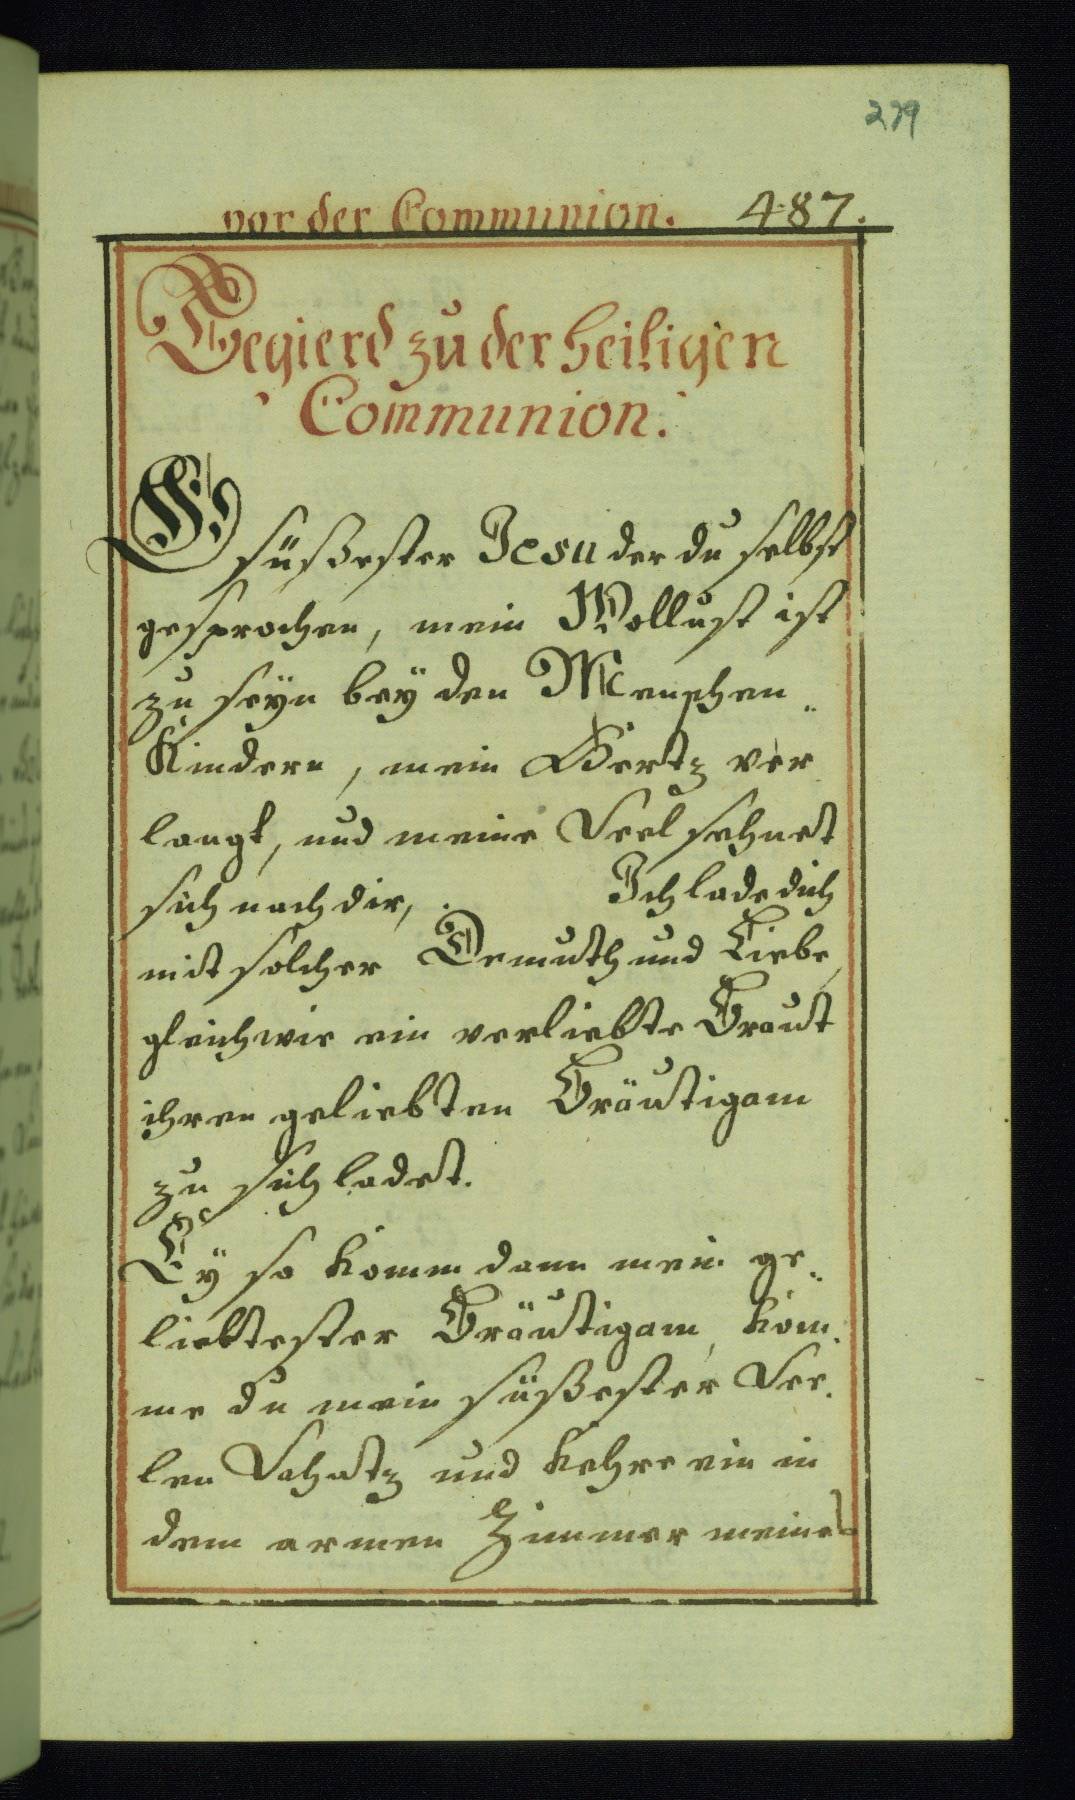 279
vor der Communion. 487.
Begierd zu der heiligen
Communion.
O süßester Jesu der du selbst
gesprochen, mein Wollust ist
zu seyn bey den Menschen
Kindern, mein Hertz ver
langt, und meine Seel sehnet
sich nach dir, . Ich lade dich
mit solcher Demuth und Liebe,
gleichwie ein verliebte Braut
ihren geliebten Bräutigam
zu sich ladet.
Ey so komm dann mein ge¬
liebtester Bräutigam, kom¬
me du mein süßester See¬
len Schatz und kehre ein in
dem armen Zimmer meines